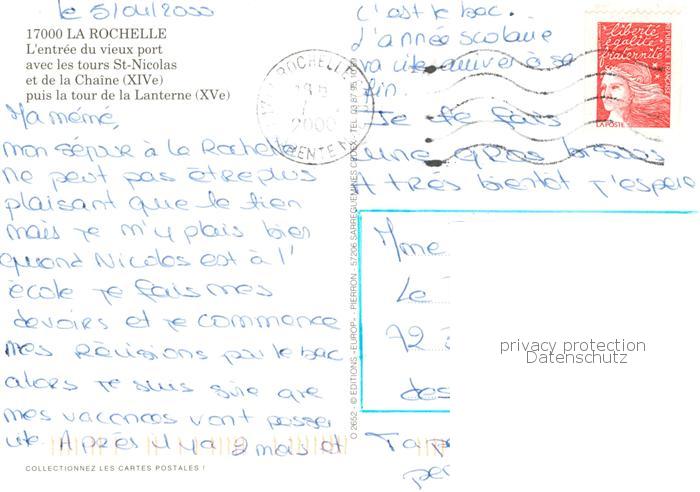 le 5/04/2000
17000 LA ROCHELLE
L'entrée du vieux port
avec les tours St-Nicolas
et de la Chaîne (XIVe)
puis la tour de la Lanterne (XVe)
Ma mémé,
mon séjour à la Rochelle
ne peut pas être plus
plaisant que le tien
mais je m'y plais bien
quand Nicolas est à l'
école je fais mes
devoirs et je commence
mes révisions pour le bac
alors je suis sûre que
mes vacances vont passer
vite. Après il y a 2 mois et
COLLECTIONNEZ LES CARTES POSTALES !
c'est le bac.
d'année scolaire
va vite arriver à sa
fin.
Je te fais
une gros bisous
A très bientôt j'espère
LA ROCHELLE
2000
O 2652 - © EDITIONS - EUROP - PIERRON - 57206 SARREGUEMINES CEDEX - TEL. 03 87 95
liberté
égalité
fraternité
RÉPUBLIQUE FRANÇAISE
LA POSTE
Mme
Le
72
des
privacy protection
Datenschutz